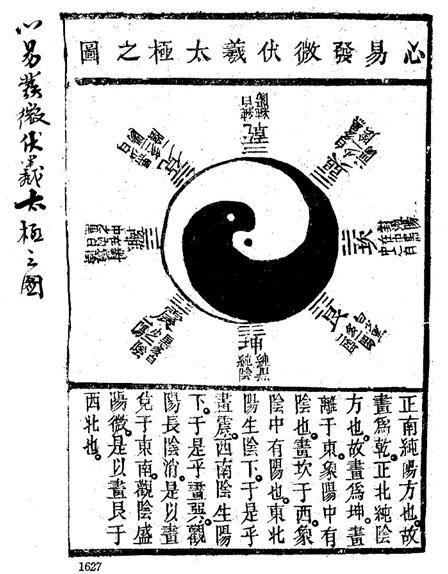 心易發微伏羲太極之圖
乾
兌
巽
離
坎
震
艮
坤
正南純陽方也。故
畫爲乾。正北純陰
方也。故畫爲坤。畫
離于東。象陽中有
陰也。畫坎于西。象
陰中有陽也。東北
陽生陰下。于是乎
畫震。西南陰生陽
下。于是乎畫巽。觀
陽長陰消。是以畫
兌于東南。觀陰盛
陽微。是以畫艮于
西北也。
心易發微伏羲太極之圖
1627